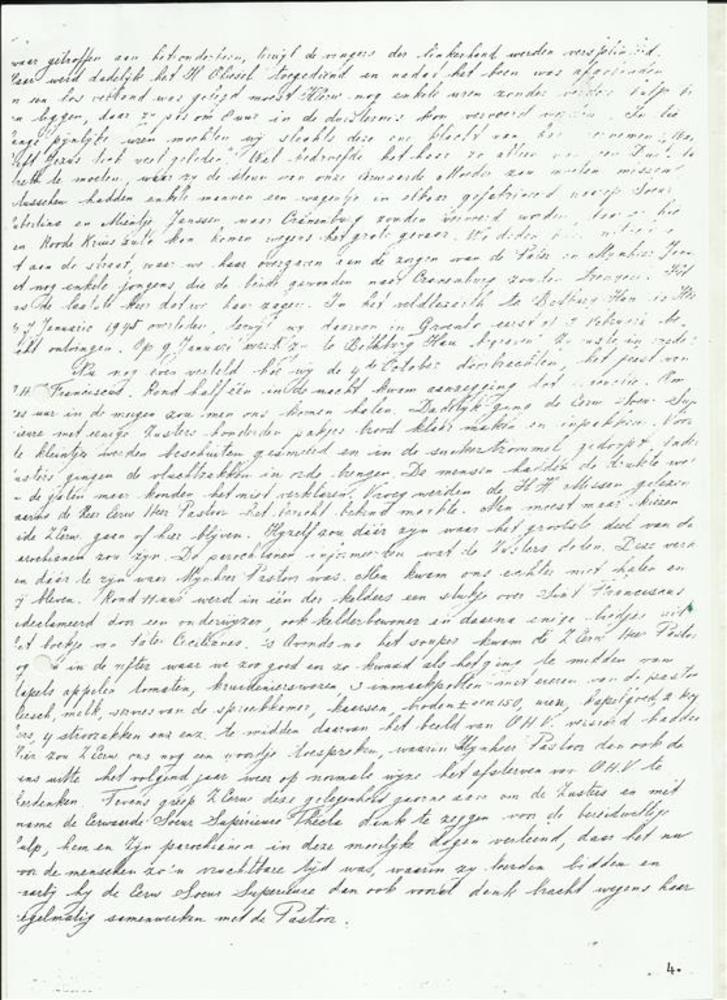 waar getroffen aan het onderbeen, terwijl de vingers der linkerhand werden
Haar werd dadelijk het H. Oliesel toegediend en nadat het been was afgebonden
en een los verband was gelegd moest Zr. nog enkele uren zonder verder hulp
liggen, daar zy pas om 6 uur in de duisternis kon vervoerd worden. In die
lange pijnlijke uren mochten wy slechts deze ene klacht van haar vernemen:
"Heeft Jezus toch veel geleden." Wel bedroefde het haar zo alleen
te moeten, waar zy de steun van onze eerwaarde Moeder zou moeten missen.
Intusschen hadden enkele mannen een wagentje in elkaar gefatsoeneerd
en Mientje Janssen naar Cranenburg zouden vervoerd worden,
en Roode Kruis zuster kon komen wegens het grote gevaar. We deden
tot aan de straat, waar we haar overgaven aan de zorgen van de Pater en Mynheer
met nog enkele jongens die de beide gewonden naar Cranenburg zouden brengen. Het
was de laatste keer dat we haar zagen. In het veldlazareth te Bedburg Hau is
7 Januarie 1945 overleden, terwijl wy daarvan in Groenlo eerst 3 Februari
ontvingen. Op 9 Januari werd zy te Bedburg Hau begraven. Zy ruste in vrede.
Nu nog even verteld hoe wy de 4de October doorbrachten, het feest van
St. Franciscus. Rond half één in de nacht kwam aanzegging tot evacuatie. Om
zes uur in de morgen zou men ons komen halen. Dadelijk ging de Eerw. Soeur
met enige Zusters honderden pakjes brood klaar maken en inpakken. Voor
de kleintjes werden beschuiten gesmeerd en in de suikertrommel gedoopt. Andere
zusters gingen de vluchtzakken in orde brengen. De mensen hadden de drukte
in de gaten maar konden het niet verklaren. Vroeg werden de H.H. Missen gelezen
waarna de Zeer Eerw. Heer Pastoor het bericht bekend maakte. Men moest maar kiezen
zeide Z.Eerw. gaan of hier blijven. Hyzelf zou daar zyn waar het grootste deel van de
parochianen zou zyn. De parochianen informeerden wat de Zusters deden. Deze
daar te zyn waar Mynheer Pastoor was. Men kwam ons echter niet halen en
wij bleven. Rond 11 uur werd in één der kelders een stukje over Sint Franciscus
gedeclameerd door een onderwijzer, ook kelderbewoner en daarna enige liedjes uit
het boekje van Pater Cecilianus. 's Avonds na het souper kwam de Z.Eerw. Heer Pastoor
in de refter waar we zoo goed en zo kwaad als het ging te midden van
stapels appelen tomaten, kruidenierswaren inmaakpotten met eieren van de pastoor
vleesch, melk, servies van de spreekkamer, kaarsen, kapelgoed,
4 strozakken enz. enz. te midden daarvan het beeld van O.H.V. versierd hadden
Hier zou Z.Eerw. ons nog een woordje toespreken, waarin Mynheer Pastoor dan ook de
wens uitte het volgend jaar weer op normale wyze het afsterven van O.H.V. te
herdenken. Tevens greep Z.Eerw. deze gelegenheid gaarne aan om de Zusters en met
name de Eerwaarde Soeur Supérieure Thecla dank te zeggen voor de bereidwillige
hulp, hem en zyn parochianen in deze moeilijke dagen verleend, daar het nu
voor de menschen zo'n vruchtbare tyd was, waarin zy leerden bidden en
waarby hy de Eerw. Soeur Superieure dan ook vooral dank bracht wegens haar
regelmatig samenwerken met de Pastoor.
4.